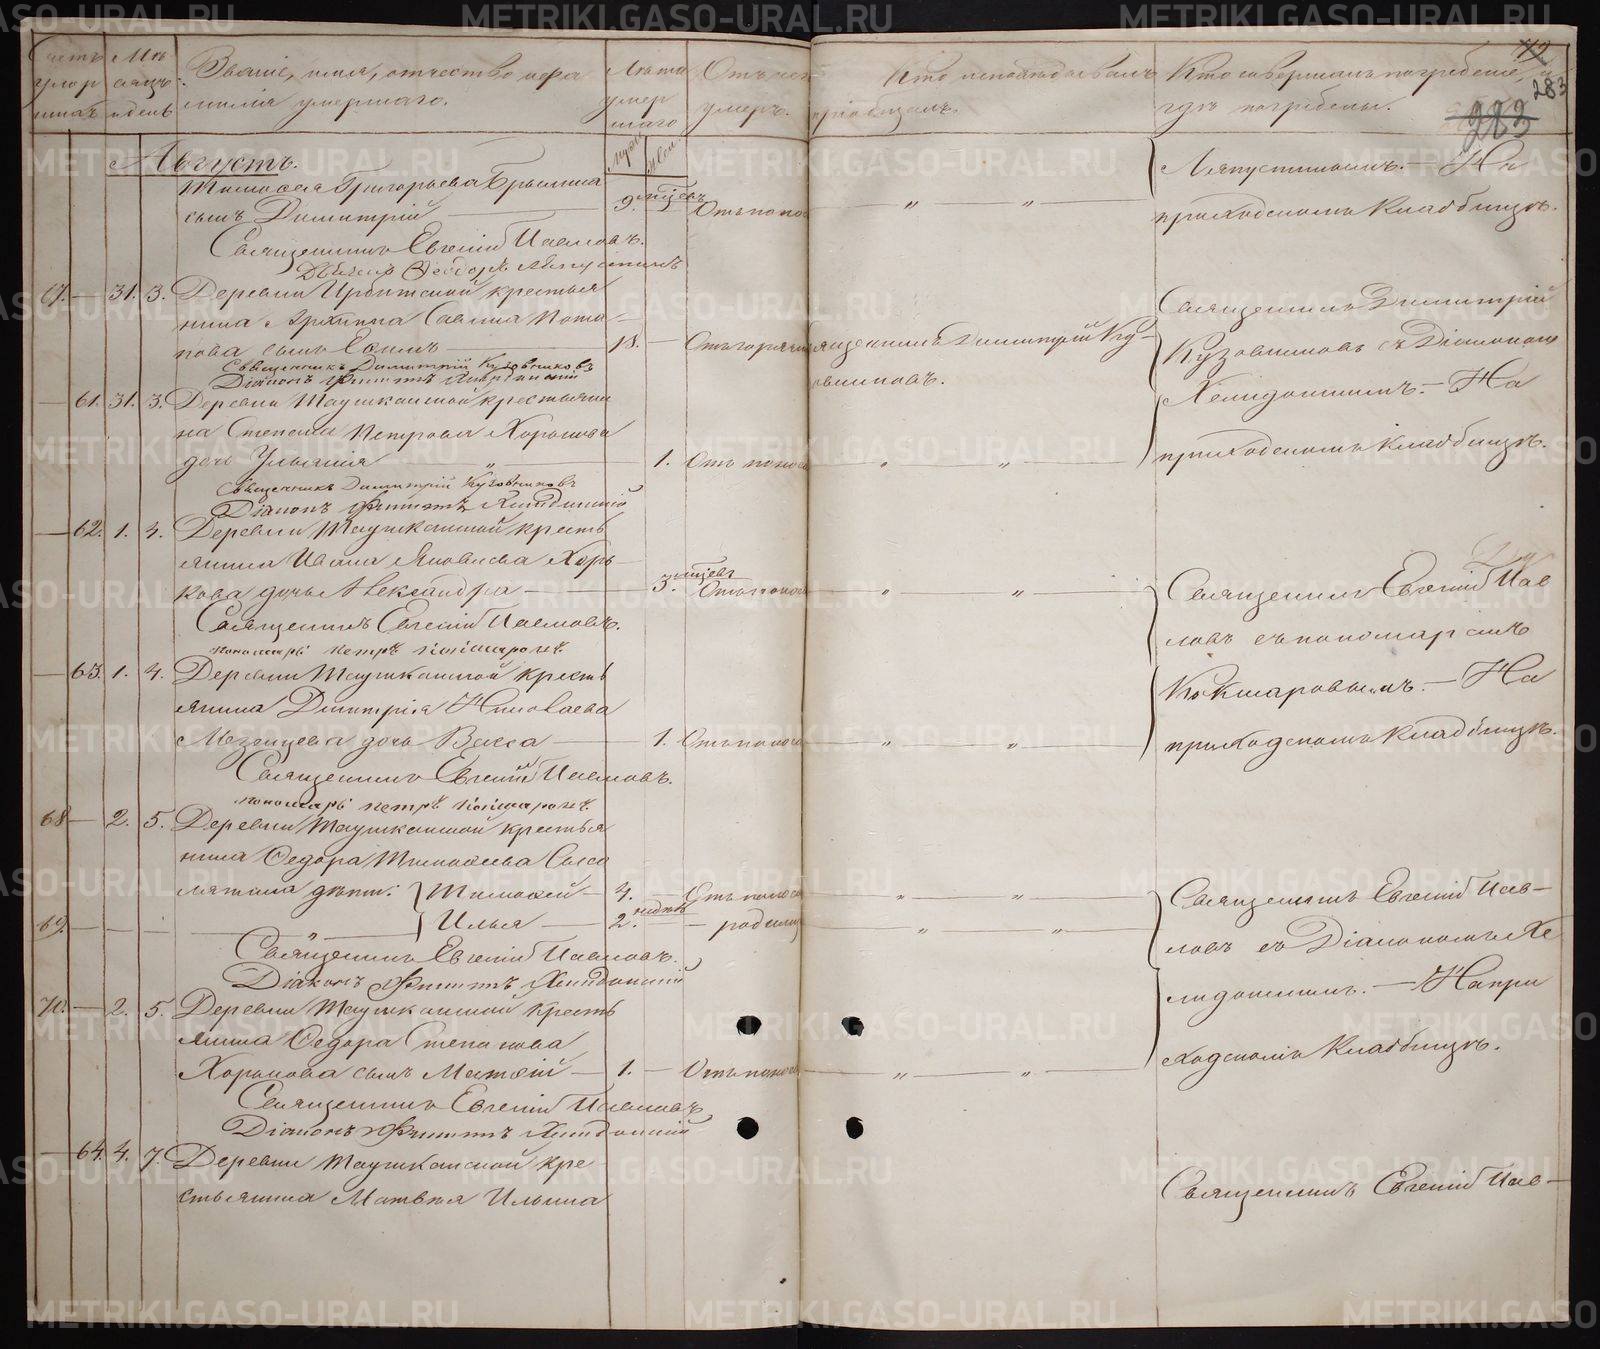 Счетъ умершихъ
Мѣсяцъ и день
Званіе, имя, отчество и фамилія умершаго.
Лѣта умершаго
Муж. Жен.
Отъ чего умеръ.
Кто исповѣдывалъ и пріобщалъ.
Кто совершалъ погребеніе, и гдѣ погребены.
42
283
283
Августъ.
Тимофея Григорьева
сынъ Димитрій
9. мѣсяц.
Отъ поноса
" "
Ляпустинымъ. — На
приходскомъ кладбищѣ.
Священникъ Евгеній Павловъ.
67. — 31. 3. Деревни Ирбитской крестья
нина Архипа Саввина Пота-
пова сынъ Евимъ
18. — Отъ горячки
Священникъ Димитрій Ку-
зовниковъ.
Священникъ Димитрій
Кузовниковъ съ Діакономъ
Хелидонскимъ. — На
приходскомъ кладбищѣ.
Священникъ Димитрій Кузовниковъ
Діаконъ Филиппъ Хелидонскій
— 61. 31. 3. Деревни Таушканской крестьяни
на Степана Петрова Хорькова
дочь Ульянія
1. Отъ поноса
" "
Священникъ Димитрій Кузовниковъ
Діаконъ Филиппъ Хелидонскій
— 62. 1. 4. Деревни Таушканской кресть
янина Ивана Яковлева Хорь-
кова дочь Александра
3. мѣсяц. Отъ поноса
" "
Священникъ Евгеній Пав
ловъ съ пономаремъ
Кокшаровымъ. — На
приходскомъ кладбищѣ.
Священникъ Евгеній Павловъ.
пономарь Петръ Кокшаровъ.
— 63. 1. 4. Деревни Таушканской кресть
янина Димитрія Николаева
Мезенцева дочь Васса
1. Отъ поноса
" "
Священникъ Евгеній Павловъ.
пономарь Петръ Кокшаровъ.
68 — 2. 5. Деревни Таушканской крестья
нина Федора Тимофеева Сысо
лятина дѣти: Тимофей — 4. — Отъ поноса
" "
69. — Илья — 2. недѣль — родимца
" "
Священникъ Евгеній Пав-
ловъ съ Діакономъ Хе
лидонскимъ. — На при
ходскомъ кладбищѣ.
Священникъ Евгеній Павловъ.
Діаконъ Филиппъ Хелидонскій
70. — 2. 5. Деревни Таушканской кресть
янина Федора Степанова
Хорькова сынъ Матфій — 1. — Отъ поноса
" "
Священникъ Евгеній Павловъ
Діаконъ Филиппъ Хелидонскій
— 64. 4. 7. Деревни Таушканской кре-
стьянина Матвѣя Ильина
Священникъ Евгеній Пав-
METRIKI.GASO-URAL.RU